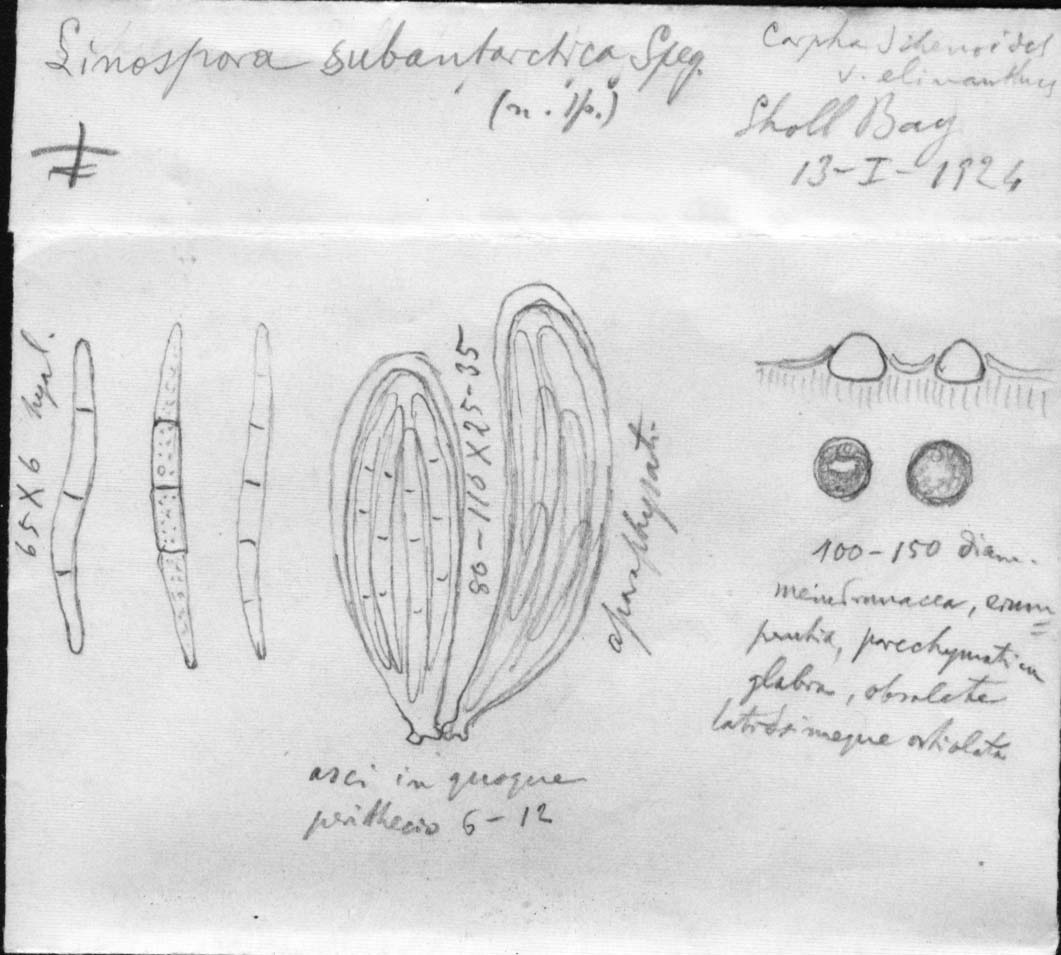 Linospora subantarctica Speg.
(n. sp.)
Carpha schenoides
v. elinanthus
Sholl Bay
13-I-1924
65 X 6 hyal.
80-110 X 25-35
aparaphysati.
asci in quoque
perithecio 6-12
100-150 diam.
membranacea, erum=
pentia, parechymatica
glabra, obsolete
latissimeque ostiolata